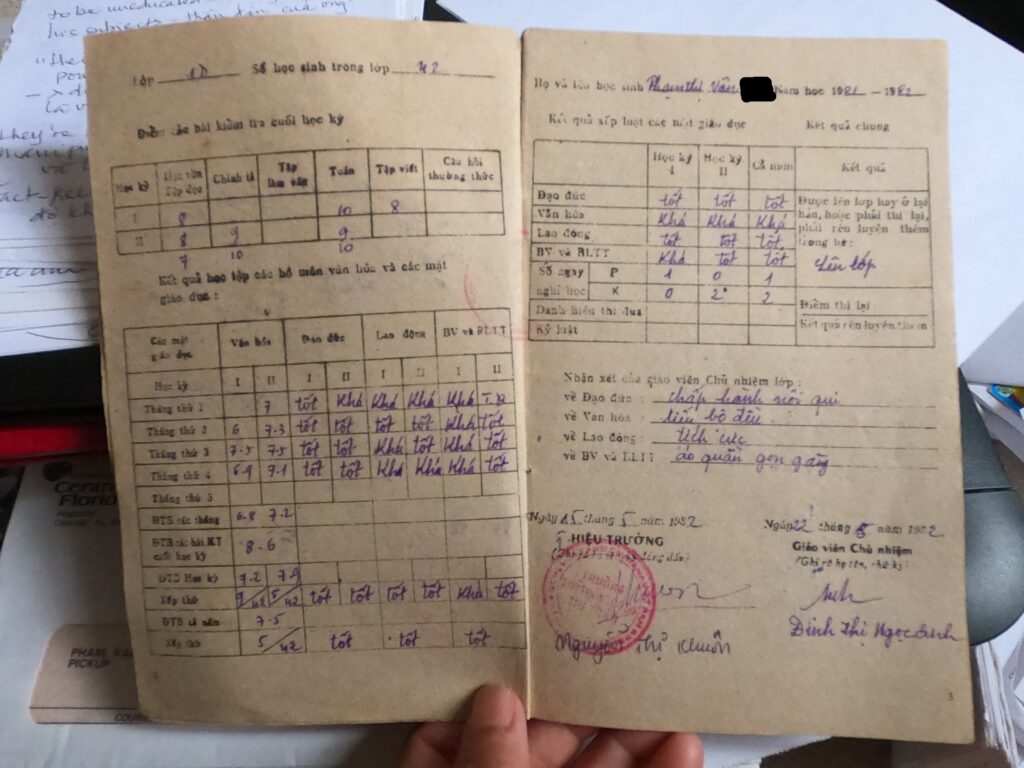 to be uneducated
his subjects - thần dân của ông
Lớp 1D Số học sinh trong lớp 42
Điểm các bài kiểm tra cuối học kỳ
Học kỳ Học vần Tập đọc Chính tả Tập làm văn Toán Tập viết Câu hỏi thường thức
I 8 10 8
II 8 9 9
7 10 10
Kết quả học tập các bộ môn văn hóa và các mặt
giáo dục :
Các mặt giáo dục Văn hóa Đạo đức Lao động BV và RLTT
Học kỳ I II I II I II I II
Tháng thứ 1 7 tốt Khá Khá Khá Khá T.B
Tháng thứ 2 6 7.3 tốt tốt tốt tốt Khá tốt
Tháng thứ 3 7.5 7.5 tốt tốt Khá tốt Khá tốt
Tháng thứ 4 6.9 7.1 tốt tốt Khá Khá Khá tốt
Tháng thứ 5
ĐTB các tháng 6.8 7.2
ĐTB các bài KT cuối học kỳ 8.6
ĐTB Học kỳ 7.2 7.9
Xếp thứ 9/42 5/42 tốt tốt tốt tốt Khá tốt
ĐTB cả năm 7.5
Xếp thứ 5/42 tốt tốt tốt
Họ và tên học sinh Phạm thị Vân Năm học 1981 - 1982
Kết quả xếp loại các mặt giáo dục Kết quả chung
Học kỳ I Học kỳ II Cả năm Kết quả
Đạo đức tốt tốt tốt
Văn hóa Khá Khá Khá
Lao động tốt tốt tốt
BV và RLTT Khá tốt tốt
Số ngày nghỉ học P 1 0 1
K 0 2 2
Danh hiệu thi đua
Kỷ luật
Được lên lớp hay ở lại
hẳn, hoặc phải thi lại,
phải rèn luyện thêm
trong hè :
Lên lớp
Điểm thi lại
Kết quả rèn luyện thêm
Nhận xét của giáo viên Chủ nhiệm lớp :
về Đạo đức : chấp hành nội qui
về Văn hóa : tiến bộ đều
về Lao động : tích cực
về BV và RLTT áo quần gọn gàng
Ngày 25 tháng 5 năm 1982
T. HIỆU TRƯỞNG
(Ghi rõ họ tên, đóng dấu)
TRƯỜNG
Nguyễn Thị Khuôn
Ngày 22 tháng 5 năm 1982
Giáo viên Chủ nhiệm
(Ghi rõ họ tên, chữ ký)
Đinh Thị Ngọc Anh
3
Central
Florida
PHAM, VA
PICKUP
COUR